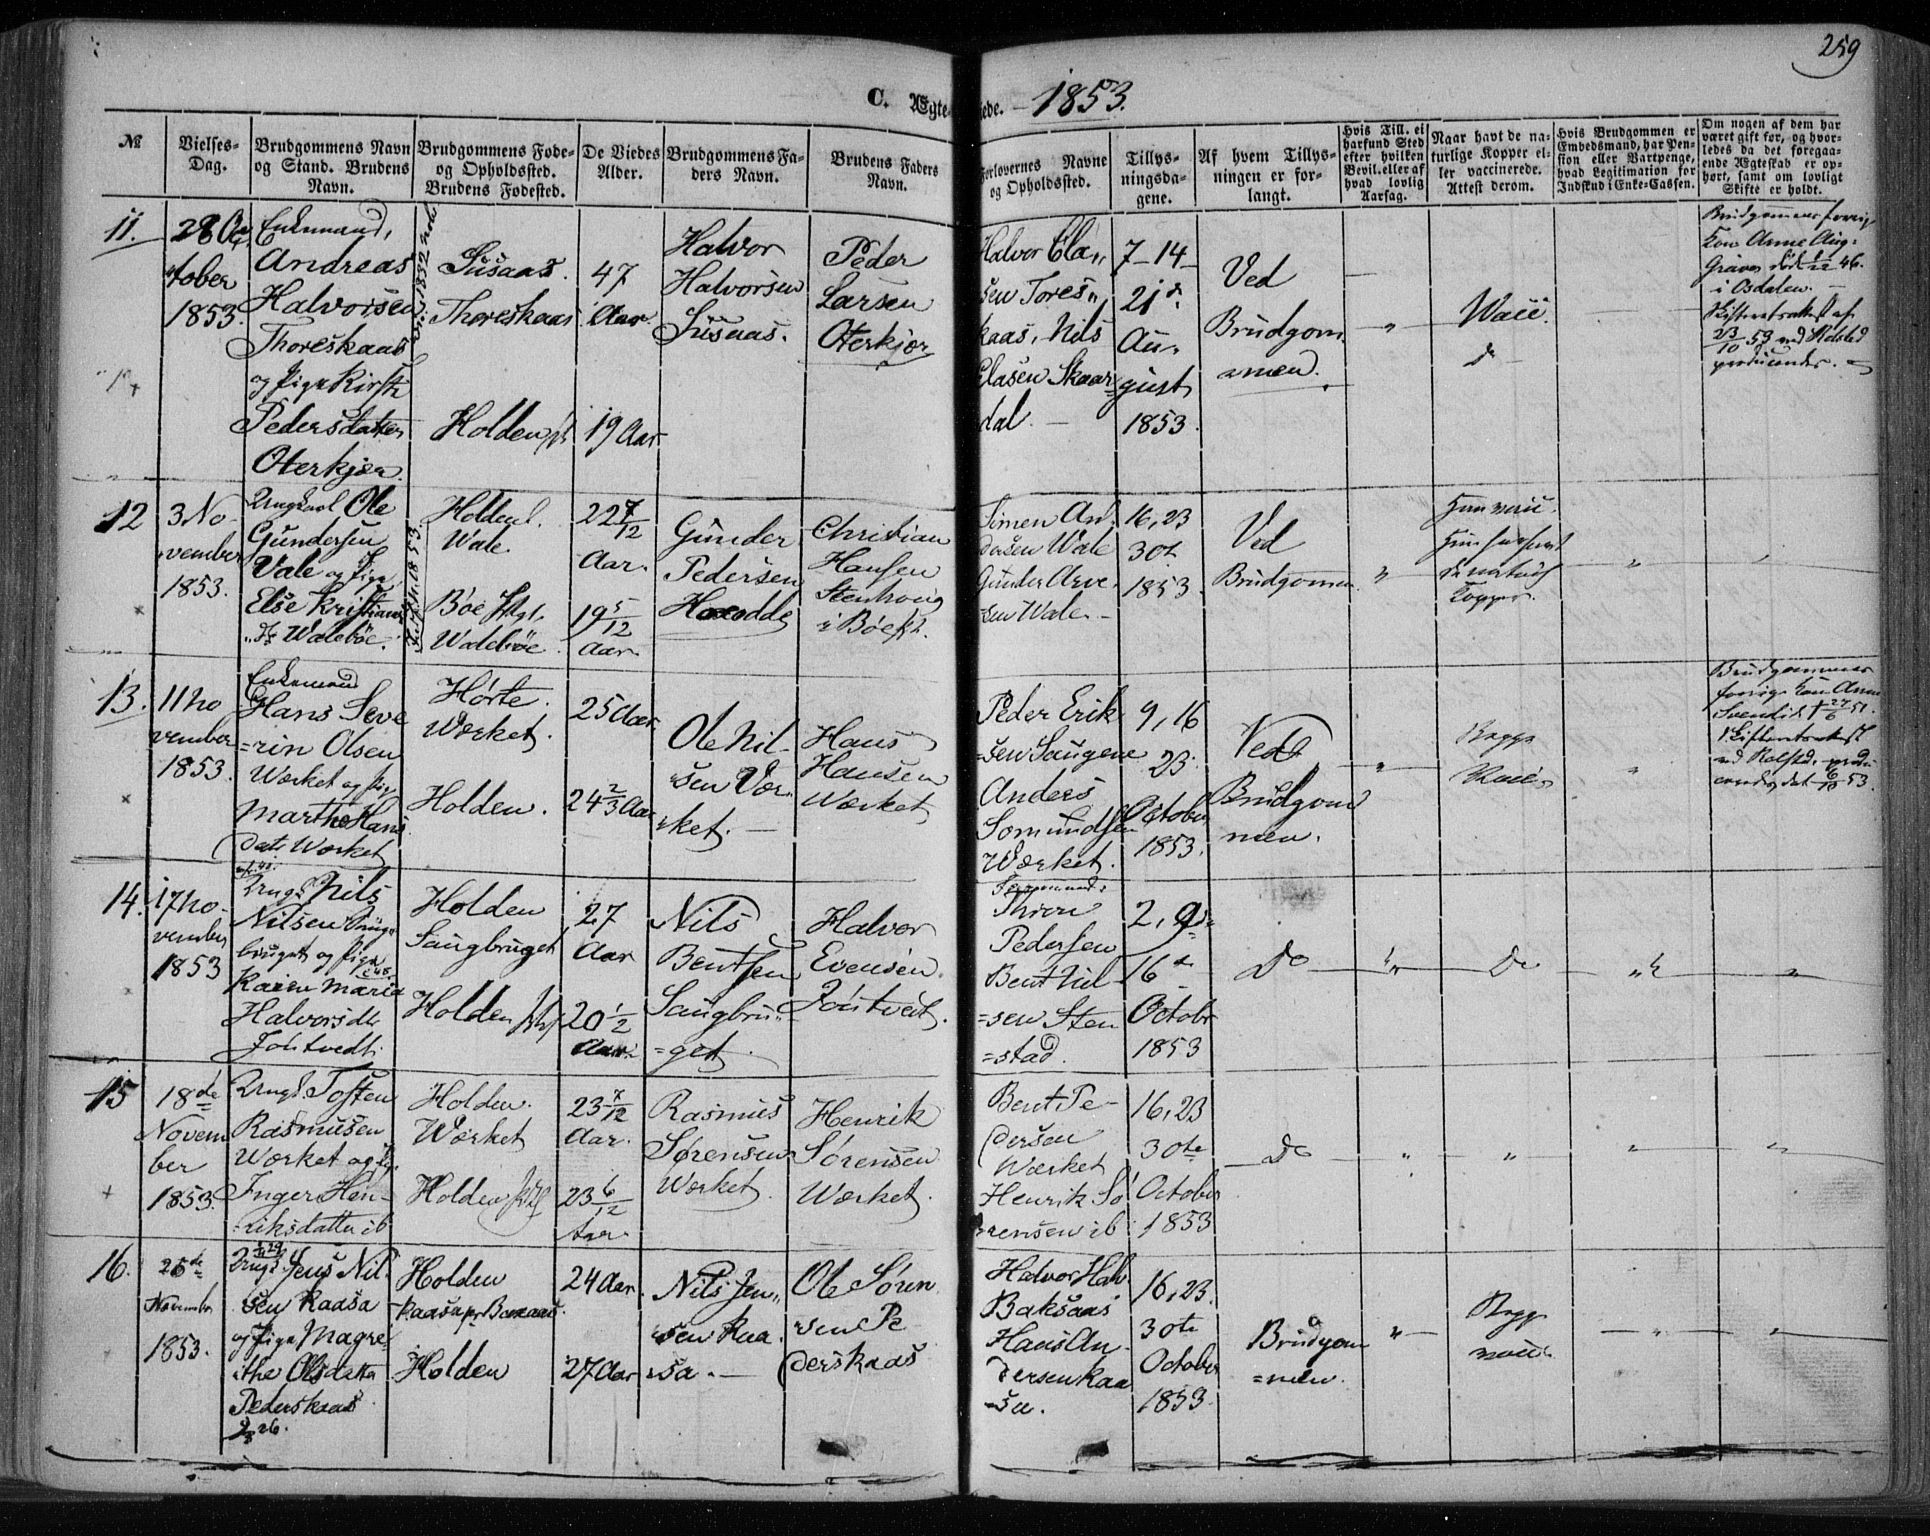 259
C. Ægte- iede. - 1853.
№
Vielses-
Dag.
Brudgommens Navn
og Stand. Brudens
Navn.
Brudgommens Føde-
og Opholdssted.
Brudens Fødested.
De Viedes
Alder.
Brudgommens Fa-
ders Navn.
Brudens Faders
Navn.
Forlovernes Navne
og Opholdssted.
Tillys-
ningsda-
gene.
Af hvem Tillys-
ningen er for-
langt.
Hvis Till. ei
harfund Sted
efter hvilken
Bevil. eller af
hvad lovlig
Aarsag.
Naar havt de na-
turlige Kopper el-
ler vaccinerede.
Attest derom.
Hvis Brudgommen er
Embedsmand, har Pen-
sion eller Vartpenge,
hvad Legitimation for
Indskud i Enke-Cassen.
Om nogen af dem har
været gift før, og hvor-
ledes da det foregaa-
ende Ægteskab er op-
hørt, samt om lovligt
Skifte er holdt.
11.
28 Oc
tober
1853.
Enkemand,
Andreas
Halvorsen
Thoreskaas
og Pige Kirsti
Pedersdatter
Oterkjær
Susaas.
Thoreskaas
Holden
47
Aar
19 Aar
Halvor
Halvorsen
Susaas.
Peder
Larsen
Oterkjær
Halvor Cla
sen Tores
kaas, Nils
Clasen Skaar
dal. -
7-14-
21d
Au
gust
1853.
Ved
Brudgom
men.
Vacc.
do
Brudgommens forrige
Kone Anne Aug:
Graver død 46.
i Osdalen. -
Skifteattest af
23/10 53 ved Rolsted
produceret.
12
3 No-
vember
1853.
Ungkarl Ole
Gundersen
Vale og Pige
Else Kristians
d. Walebøe.
Holden.
Wale.
Bøe
Walebøe.
22 7/12
Aar.
19 5/12
Aar.
Gunder
Pedersen
Christian
Hansen
Stenhoug
i Bøe
Simen An
dersen Wale
Gunder Arve
sen Wale -
16, 23
30t
1853.
Ved
Brudgomm
Ham vacc.
naturl
Kopper.
13.
11 No
vember
1853.
Enkemand
Hans Seve
=rin Olsen
Wærket og Pig
Marthe Hans
Datt. Wærket
Hørte.
Værket.
Holden.
25 Aar
24 2/3 Aar
Ole Nil-
sen Vær
ket. -
Hans
Hansen
Værket
Peder Erik
=sen Saugene
Anders
Somundsen
Værket.
9, 16
23
October
1853.
Ved
Brudgom
men.
Begge
Vacc.
Brudgommens
forrige Kone Anne
Svendsd. † 27/6 51.
Skifteattest
ved Rolsted, produ
ceret, dat 6/10 53.
14.
17 No-
vember
1853
Ungk Nils
Nilsen Saug
bruget og Pige
Karen Maria
Halvorsdtr
Jontvedt.
Holden
Saugbruget
Holden
27
Aar
20 1/2
Aar.
Nils
Bentsen
Saugbru
=get
Halvor
Evensen
Jontvedt.
Thron
Pedersen
Bent Nil
=sen Sten
=stad.
2, 9de
16de
Octobr
1853
Do
Do
15
18de
Novem
ber
1853.
Ungk. Tosten
Rasmusen
Værket og Pig
Inger Hen-
=riksdatter ib
Holden.
Værket
Holden
23 7/12
Aar.
23 6/12
Aar.
Rasmus
Sørensen
Værket.
Henrik
Sørensen
Værket.
Bent Pe-
dersen
Værket
Henrik Sø
rensen ib
16, 23
30te
October
1853
Do
16.
25de
November
1853.
Ungk. Jens Nil
sen Kaasa
og Pige Magre
the Olsdatter
Pederskaas
Holden
Holden
24 Aar.
27 Aar
Nils Jen
sen Kaa
sa. -
Ole Søren
sen Pe
derskaas
Halvor Halv
Baksaas
Hans An
dersen Kaa
sa.
16, 23.
30te
October
1853.
Brudgom
=men.
Begge
vacc.